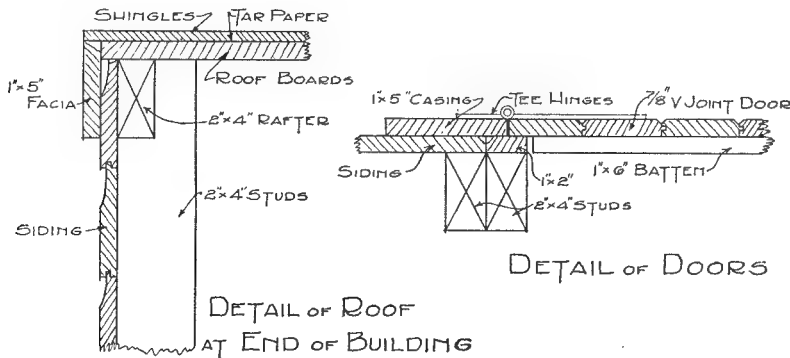 SHINGLES
TAR PAPER
ROOF BOARDS
1"×5"
FACIA
2"×4" RAFTER
2"×4" STUDS
SIDING
DETAIL OF ROOF
AT END OF BUILDING
1"×5" CASING
TEE HINGES
7/8" V JOINT DOOR
SIDING
1"×2"
1"×6" BATTEN
2"×4" STUDS
DETAIL OF DOORS